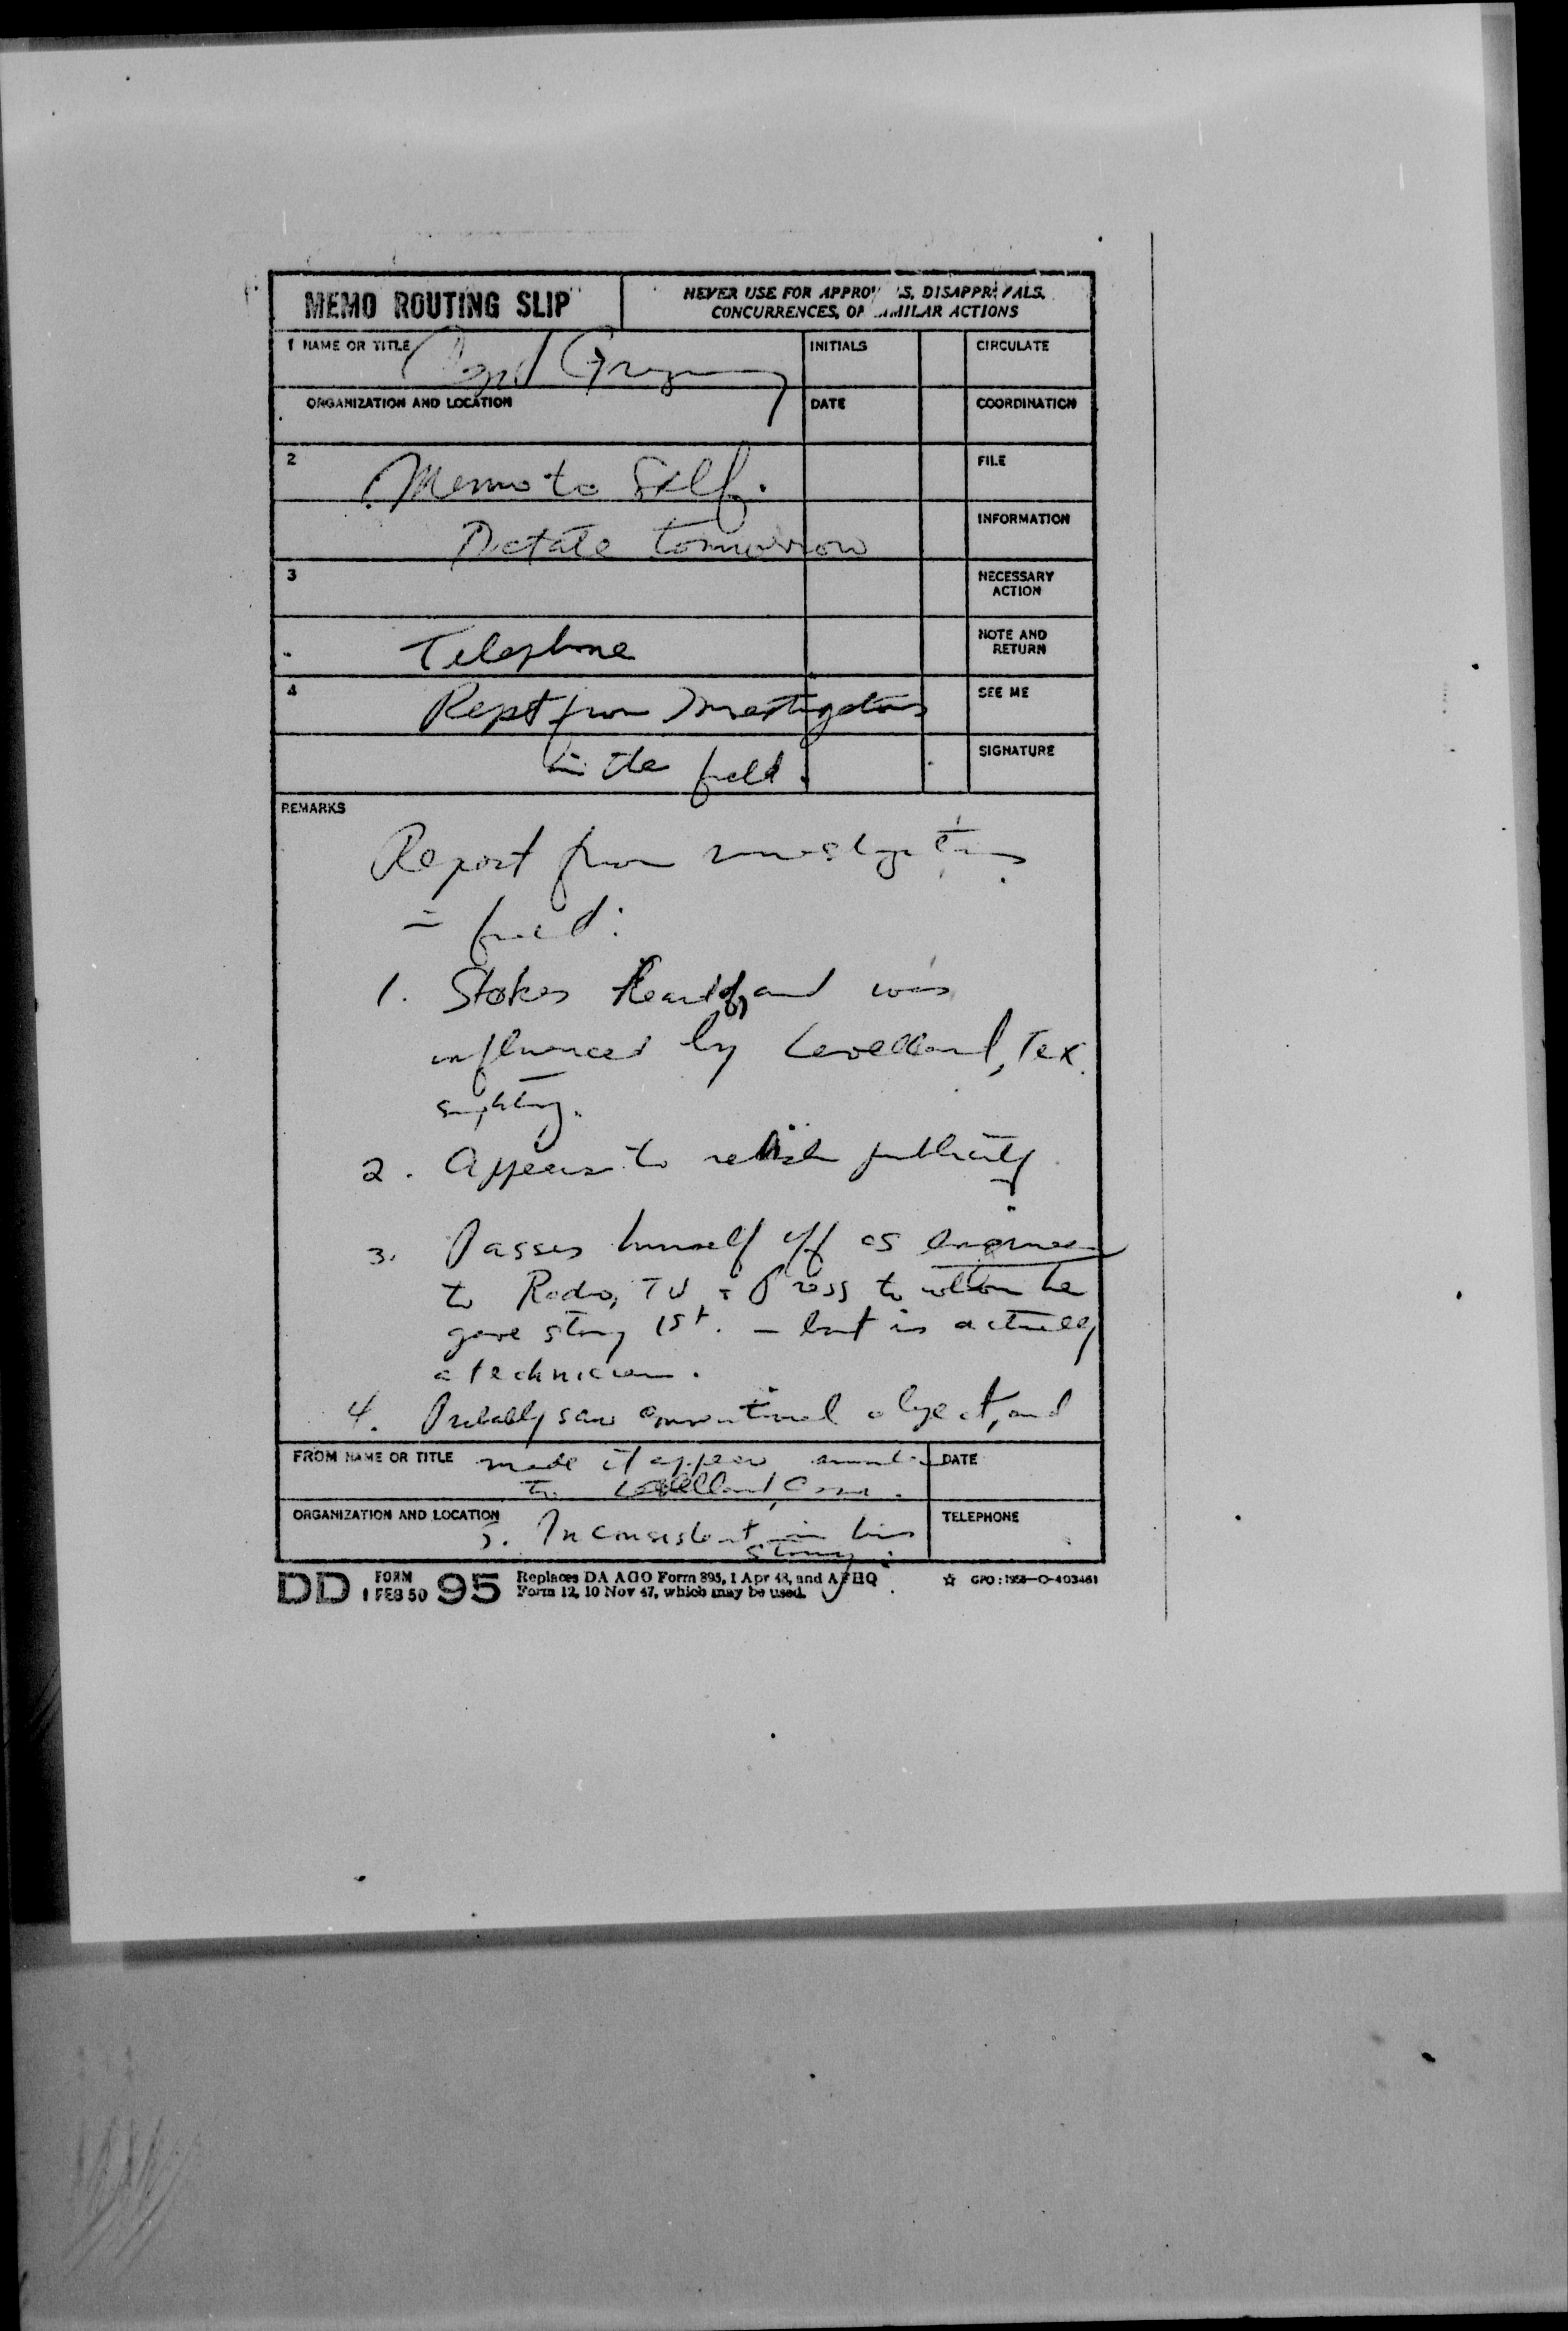 MEMO ROUTING SLIP
NEVER USE FOR APPROV'LS, DISAPPROVALS,
CONCURRENCES, OR SIMILAR ACTIONS
1 NAME OR TITLE Capt Gregory
INITIALS
CIRCULATE
ORGANIZATION AND LOCATION
DATE
COORDINATION
2 Memo to Self.
FILE
Dictate tomorrow
INFORMATION
3
NECESSARY
ACTION
Telephone
NOTE AND
RETURN
4 Rept from Investigators
SEE ME
in the field.
SIGNATURE
REMARKS
Report from investigators
in field:
1. Stokes Heard of, and was
influenced by Levelland, Tex.
sighting.
2. Appears to relish publicity.
3. Passes himself off as engineer
to Radio, TV & Press to whom he
gave story 1st. – but is actually
a technician.
4. Probably saw conventional object, and
FROM NAME OR TITLE made it appear similar
DATE
to Levelland, Case.
ORGANIZATION AND LOCATION
5. Inconsistent in his
TELEPHONE
story.
DD FORM 1 FEB 50 95
Replaces DA AGO Form 895, 1 Apr 48, and AFHQ
Form 12, 10 Nov 47, which may be used.
☆ GPO : 1956—O-403461